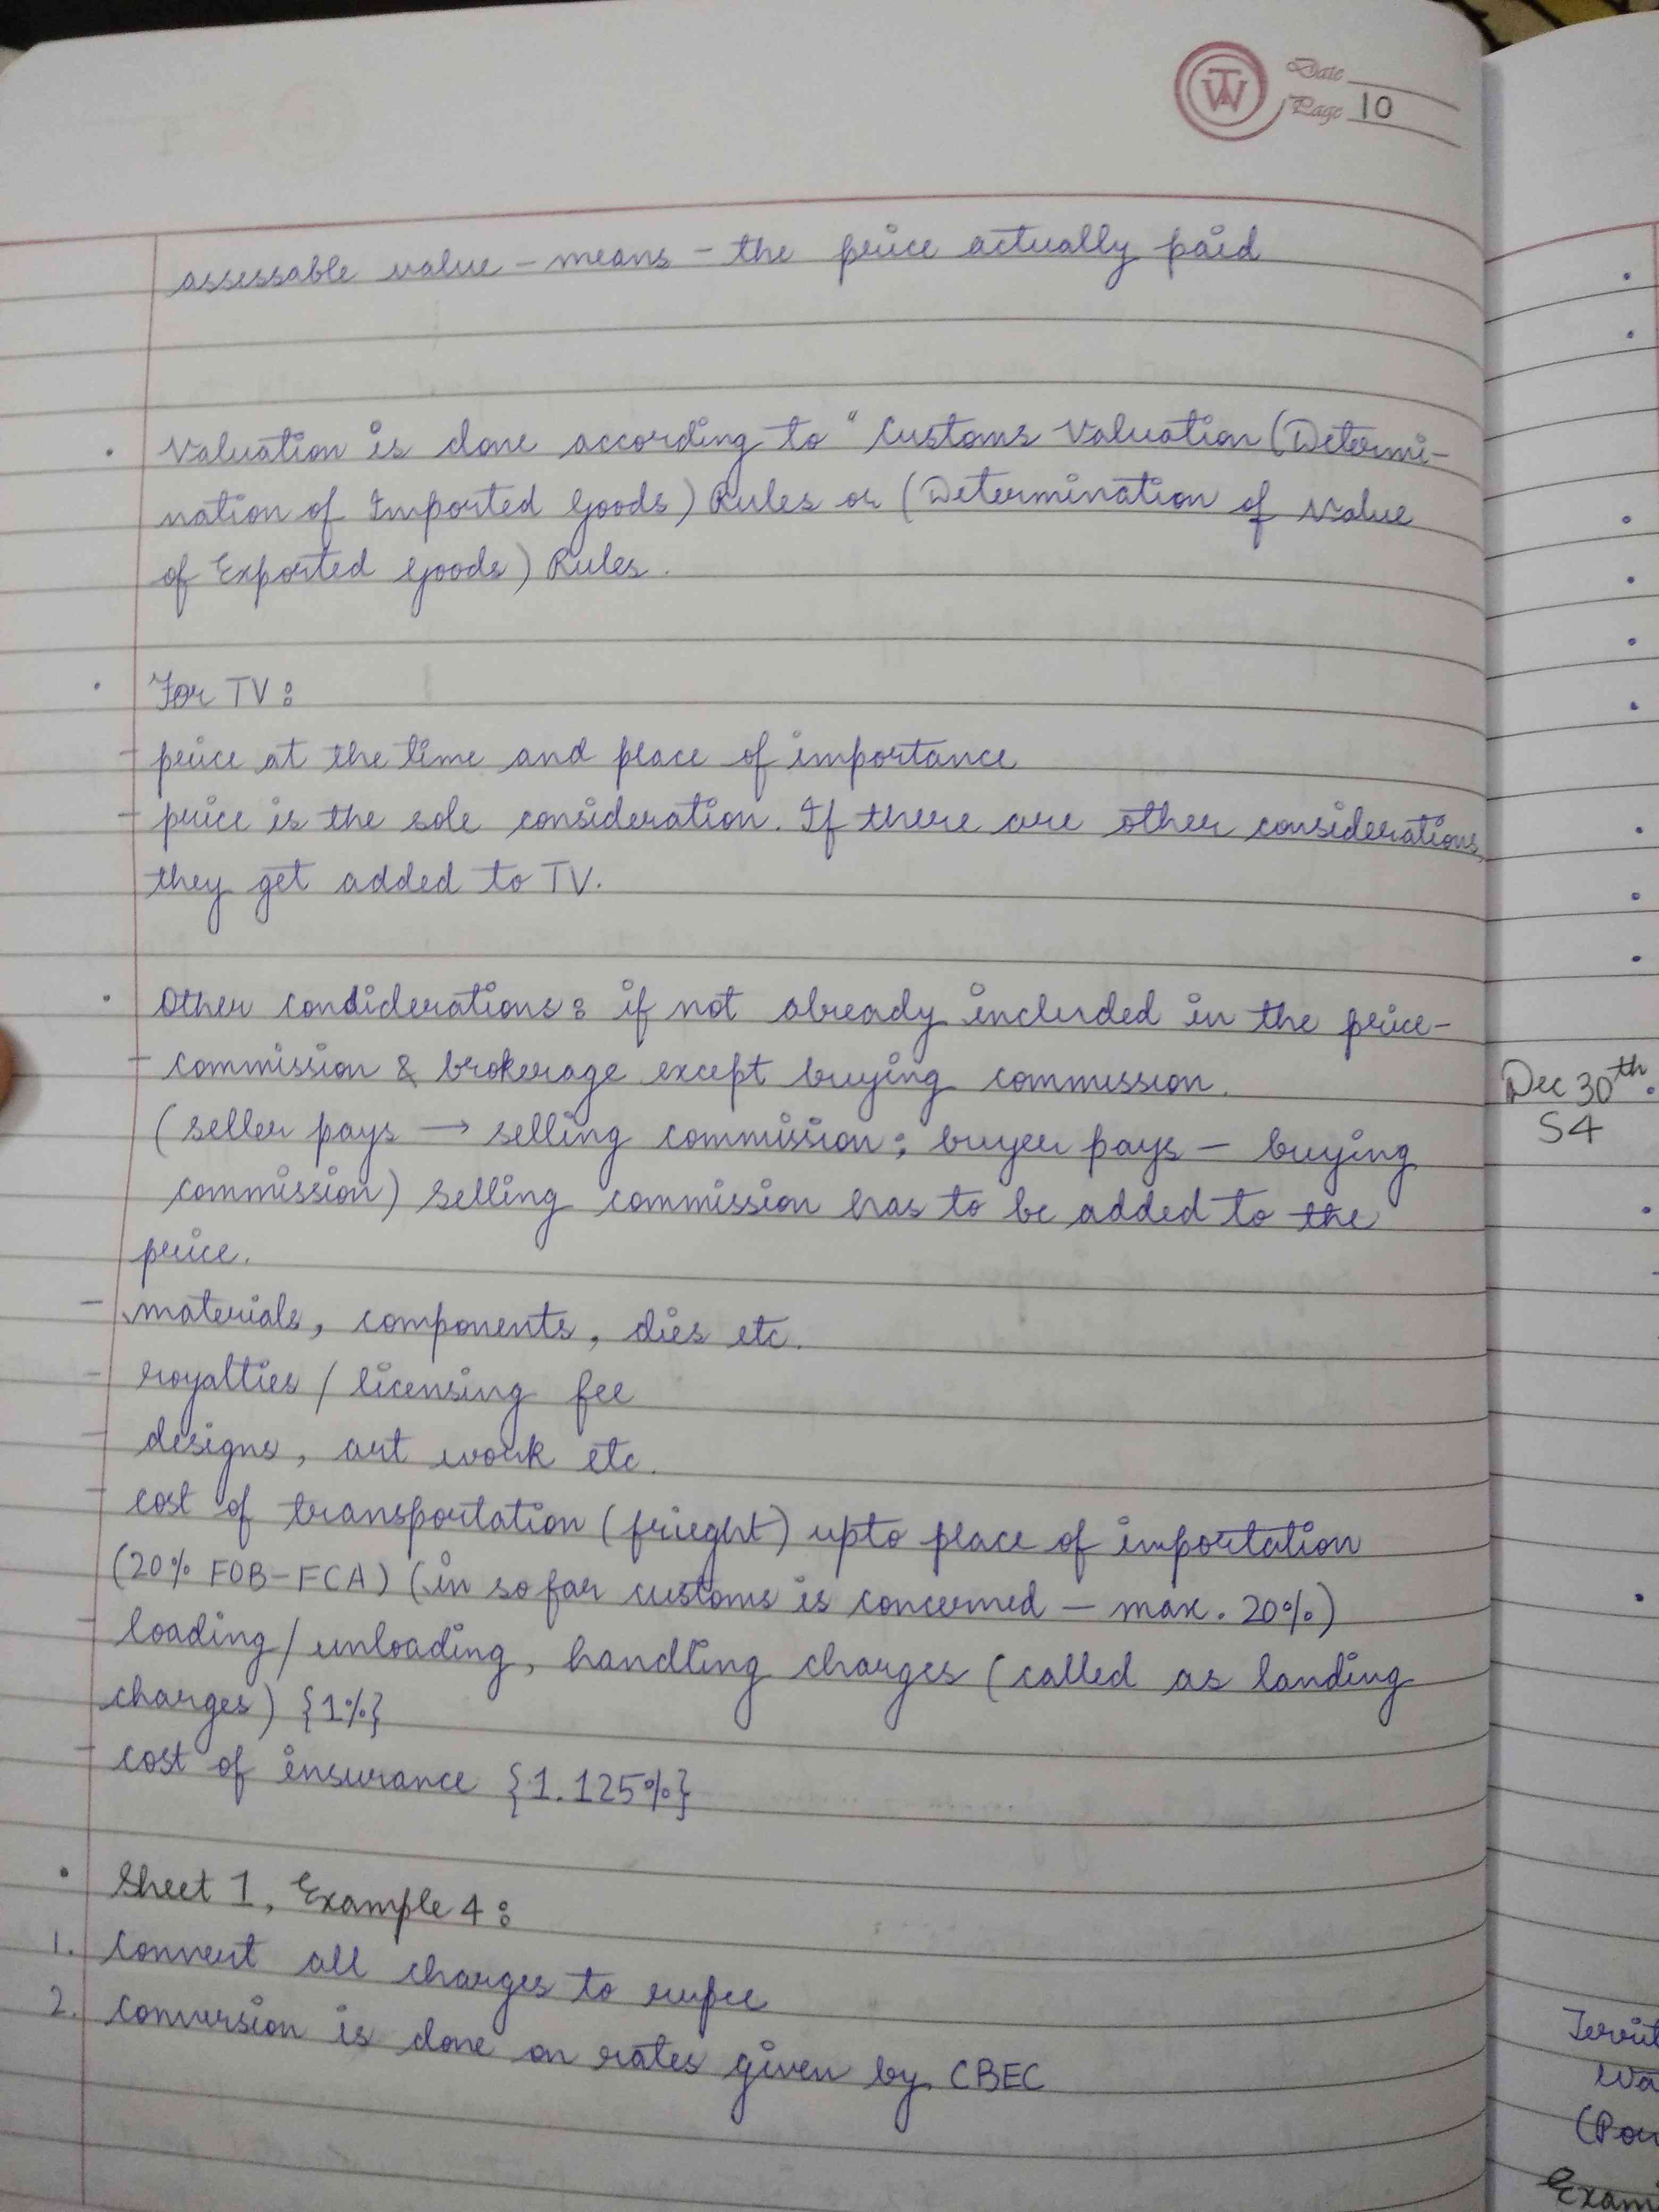 Date
Page 10
assessable value – means – the price actually paid
• Valuation is done according to "Customs Valuation (Determi-
nation of Imported Goods) Rules or (Determination of Value
of Exported Goods) Rules.
• For TV :
– price at the time and place of importance
– price is the sole consideration. If there are other considerations,
they get added to TV.
• Other condiderations : if not already included in the price–
– commission & brokerage except buying commission.
(seller pays → selling commission ; buyer pays – buying
commission) selling commission has to be added to the
price.
– materials, components, dies etc.
– royalties / licensing fee
– designs, art work etc.
– cost of transportation (frieght) upto place of importation
(20% FOB-FCA) (in so far customs is concerned – max. 20%)
– loading / unloading, handling charges (called as landing
charges) {1%}
– cost of insurance {1.125%}
• Sheet 1, Example 4 :
1. Convert all charges to rupee
2. Conversion is done on rates given by CBEC
Dec 30th
S4